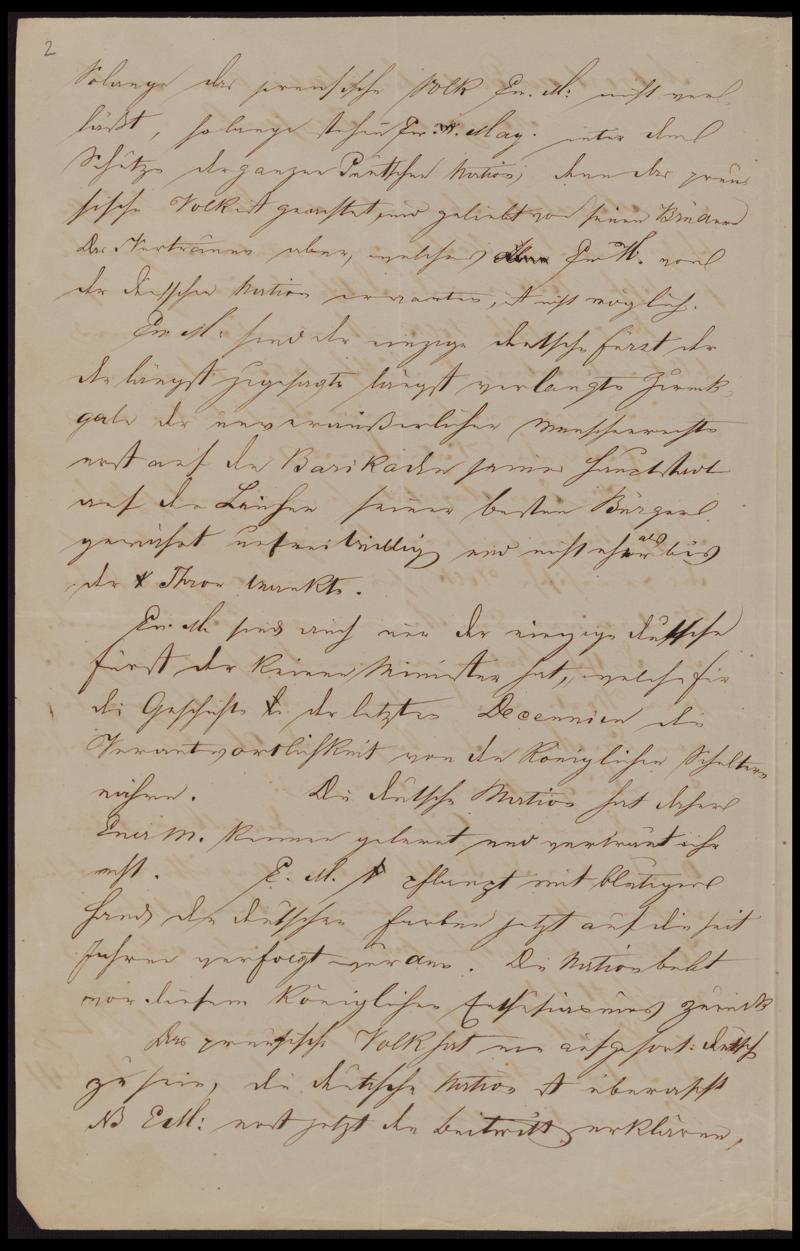 2
Solange das preusische Volk Ew. M: nicht verl
läßt, solange stehen Ew. M. May. unter dem
Schutze der ganzen Deutschen Nation, denn das preu
sische Volk ist geachtet, und geliebt von seinen Brüdern
Das Vertrauen aber, welches Ew M. von
der deutschen Nation erwarten, ist nicht möglich.
Ew M: sind der einzige deutsche Fürst der
die längst zugesagte längst verlangte Zurück
gabe der unveräußerlichen Menschenrechte
erst auf den Barikaden seiner Hauptstadt
auf den Leichen seiner besten Bürger
gewährt unfreiwillig und nicht eher als bis
der Thron wankte.
Ew. M sind auch nun der einzige deutsche
Fürst der keinen Minister hat, welche für
die Geschichte der letzten Decennien die
Verantwortlichkeit von den Königlichen Schultern
nähme. Die deutsche Nation hat daher
Euer M. kennen gelernt und vertraut ihr
nicht. E. M. pflanzt mit blutiger
Hand die deutschen Farben jetzt auf die seit
Jahren verfolgt wurden. Die Nation bebt
vor diesem Königlichen Enthusiasmus zurück
Das preusische Volk hat nie aufgehört: deutsch
zu sein, die deutsche Nation ist überrascht
NB EM: erst jetzt den Beitritt erklären,